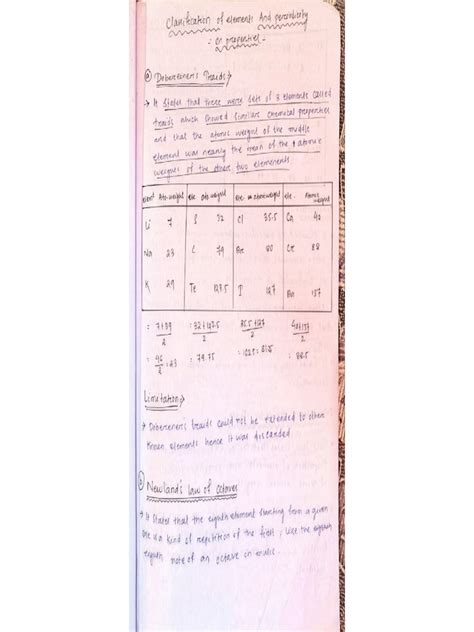 Classification of elements And periodicity
in properties
ⓐ Dobereiner's Traids:→
→ It states that there were sets of 3 elements called
traids which showed similar chemical properties
and that the atomic weight of the middle
element was nearly the mean of the atomic
weights of the other two elements
element Ato.weight ele ato.weight ele atomic weight ele. Atomic weight
Li 7 S 32 Cl 35.5 Ca 40
Na 23 79 Br 80 88
K Te 127.5 I 127 Ba 137
= 7+39/2 = 32+127.5/2 35.5+127/2 40+137/2
= 46/2 = 23 = 79.75
Limitation:→
→ Dobereiner's traids could not be extended to other
known elements hence it was discarded
ⓑ Newland's law of octaves
→ It states that the eighth element starting from a given
one is a kind of repetition of the first, like the
eighth note of an octave in music.